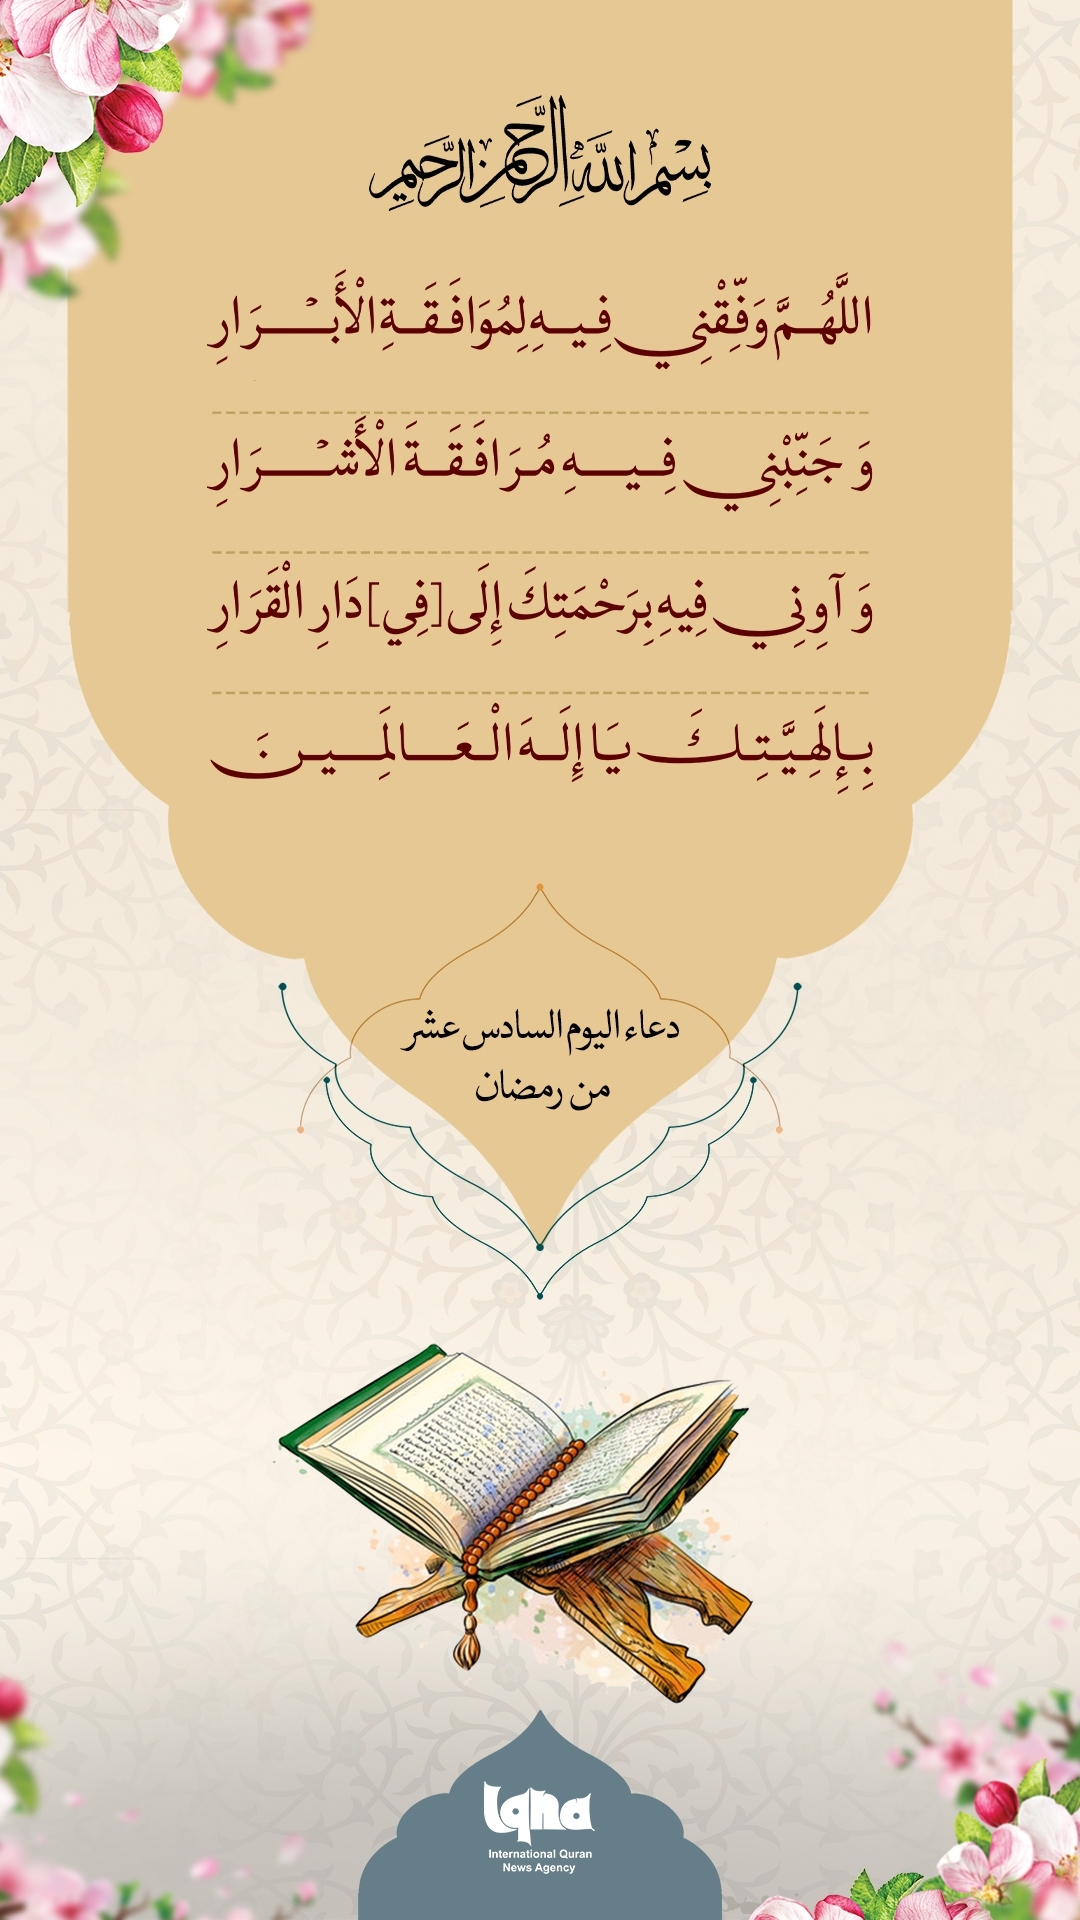 بِسْمِ اللَّهِ الرَّحْمَنِ الرَّحِيمِ
اللَّهُمَّ وَفِّقْنِي فِيهِ لِمُوَافَقَةِ الْأَبْرَارِ
وَ جَنِّبْنِي فِيهِ مُرَافَقَةَ الْأَشْرَارِ
وَ آوِنِي فِيهِ بِرَحْمَتِكَ إِلَى [فِي] دَارِ الْقَرَارِ
بِإِلَهِيَّتِكَ يَا إِلَهَ الْعَالَمِينَ
دعاء اليوم السادس عشر
من رمضان
iqna
International Quran
News Agency